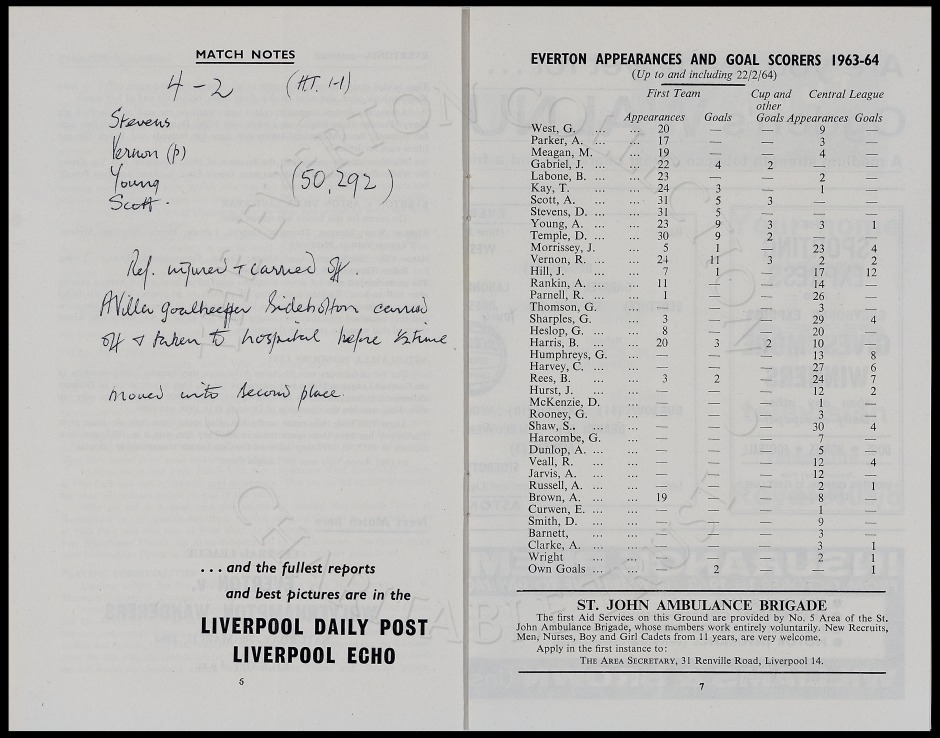 MATCH NOTES
4-2 (H.T. 1-1)
Stevens
Vernon (p)
Young (50,292)
Scott.
Ref. injured + carried off.
A Villa goalkeeper Sidebottom carried
off & taken to hospital before ½ time
moved into second place.
... and the fullest reports
and best pictures are in the
LIVERPOOL DAILY POST
LIVERPOOL ECHO
5
EVERTON APPEARANCES AND GOAL SCORERS 1963-64
(Up to and including 22/2/64)
First Team Cup and other Central League
Appearances Goals Goals Appearances Goals
West, G. ... ... 20 — — 9 —
Parker, A. ... ... 17 — — 3 —
Meagan, M. ... 19 — — 4 —
Gabriel, J. ... ... 22 4 2 — —
Labone, B. ... ... 23 — — 2 —
Kay, T. ... ... 24 3 — 1 —
Scott, A. ... ... 31 5 3 — —
Stevens, D. ... ... 31 5 — — —
Young, A. ... ... 23 9 3 3 1
Temple, D. ... ... 30 9 2 — —
Morrissey, J. ... 5 1 — 23 4
Vernon, R. ... ... 24 11 3 2 2
Hill, J. ... ... 7 1 — 17 12
Rankin, A. ... ... 11 — — 14 —
Parnell, R. ... ... 1 — — 26 —
Thomson, G. ... — — — 3 —
Sharples, G. ... 3 — — 29 4
Heslop, G. ... ... 8 — — 20 —
Harris, B. ... ... 20 3 2 10 —
Humphreys, G. ... — — — 13 8
Harvey, C. ... ... — — — 27 6
Rees, B. ... ... 3 2 — 24 7
Hurst, J. ... ... — — — 12 2
McKenzie, D. ... — — — 1 —
Rooney, G. ... — — — 3 —
Shaw, S.. ... ... — — — 30 4
Harcombe, G. ... — — — 7 —
Dunlop, A. ... ... — — — 5 —
Veall, R. ... ... — — — 12 4
Jarvis, A. ... ... — — — 12 —
Russell, A. ... ... — — — 2 1
Brown, A. ... ... 19 — — 8 —
Curwen, E. ... ... — — — 1 —
Smith, D. ... ... — — — 9 —
Barnett, ... ... — — — 3 —
Clarke, A. ... ... — — — 3 1
Wright ... ... — — — 2 1
Own Goals ... ... 2 — — 1
ST. JOHN AMBULANCE BRIGADE
The first Aid Services on this Ground are provided by No. 5 Area of the St.
John Ambulance Brigade, whose members work entirely voluntarily. New Recruits,
Men, Nurses, Boy and Girl Cadets from 11 years, are very welcome.
Apply in the first instance to:
THE AREA SECRETARY, 31 Renville Road, Liverpool 14.
7